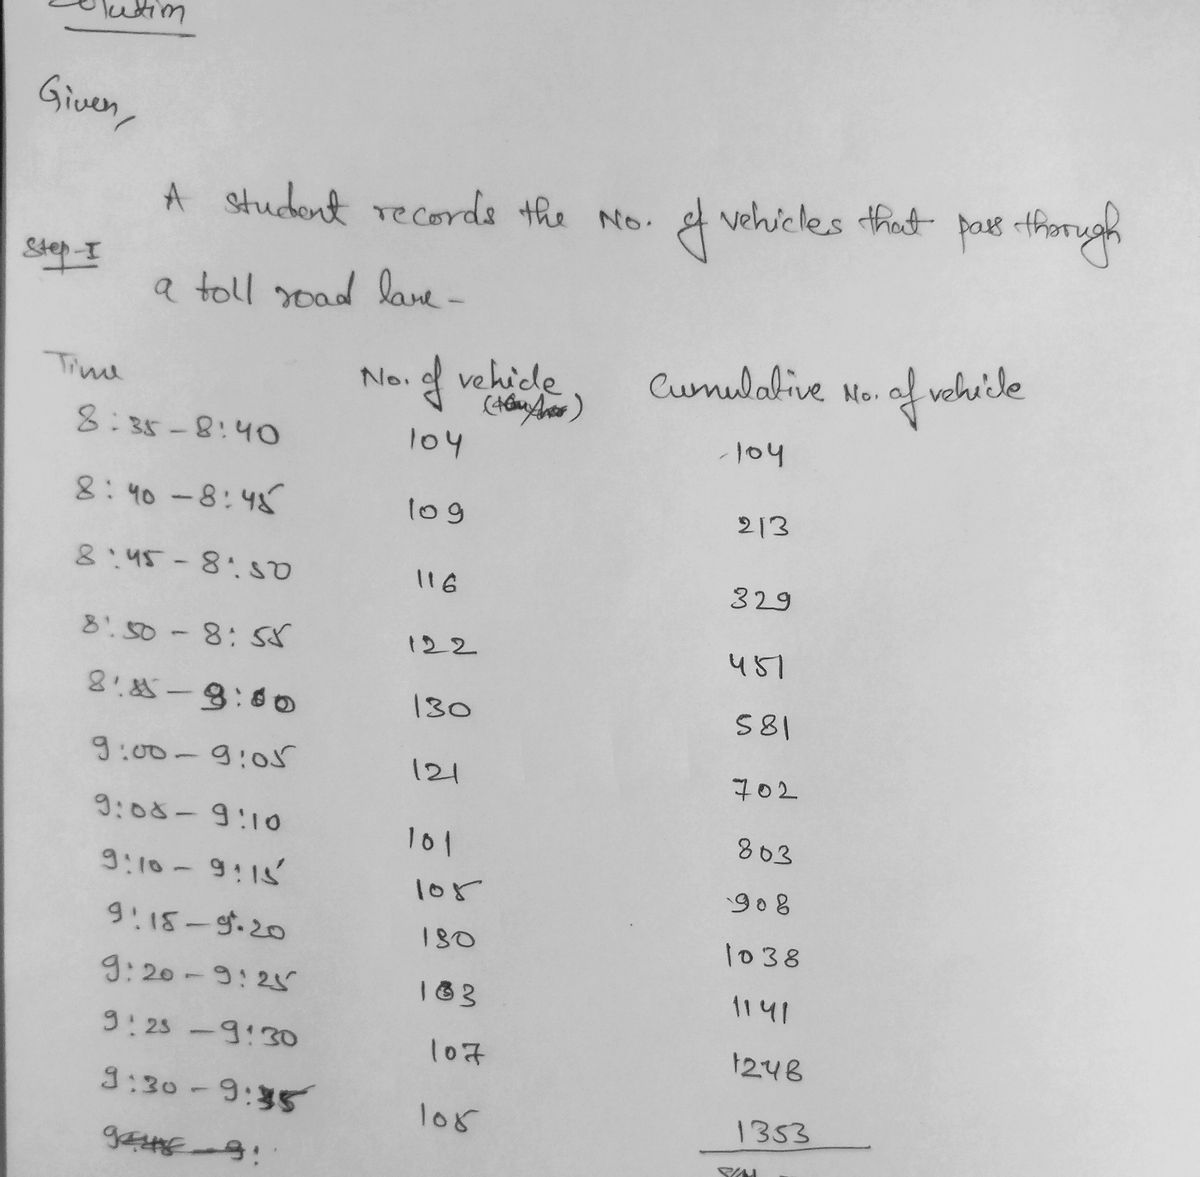 Solution
Given,
A student records the No. of vehicles that pass thorugh
Step-I
a toll road lane -
Time No. of vehicle Cumulative No. of vehicle
8:35-8:40 104 104
8:40-8:45 109 213
8:45-8:50 116 329
8:50-8:55 122 451
8:55-9:00 130 581
9:00-9:05 121 702
9:05-9:10 101 803
9:10-9:15 105 908
9:15-9.20 130 1038
9:20-9:25 103 1141
9:25-9:30 107 1248
9:30-9:35 105 1353